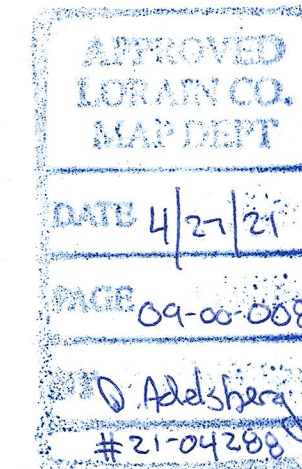 APPROVED
LORAIN CO.
MAP DEPT
DATE 4/27/21
PAGE 09-00-008
BY D. Adelsberg
#21-04288